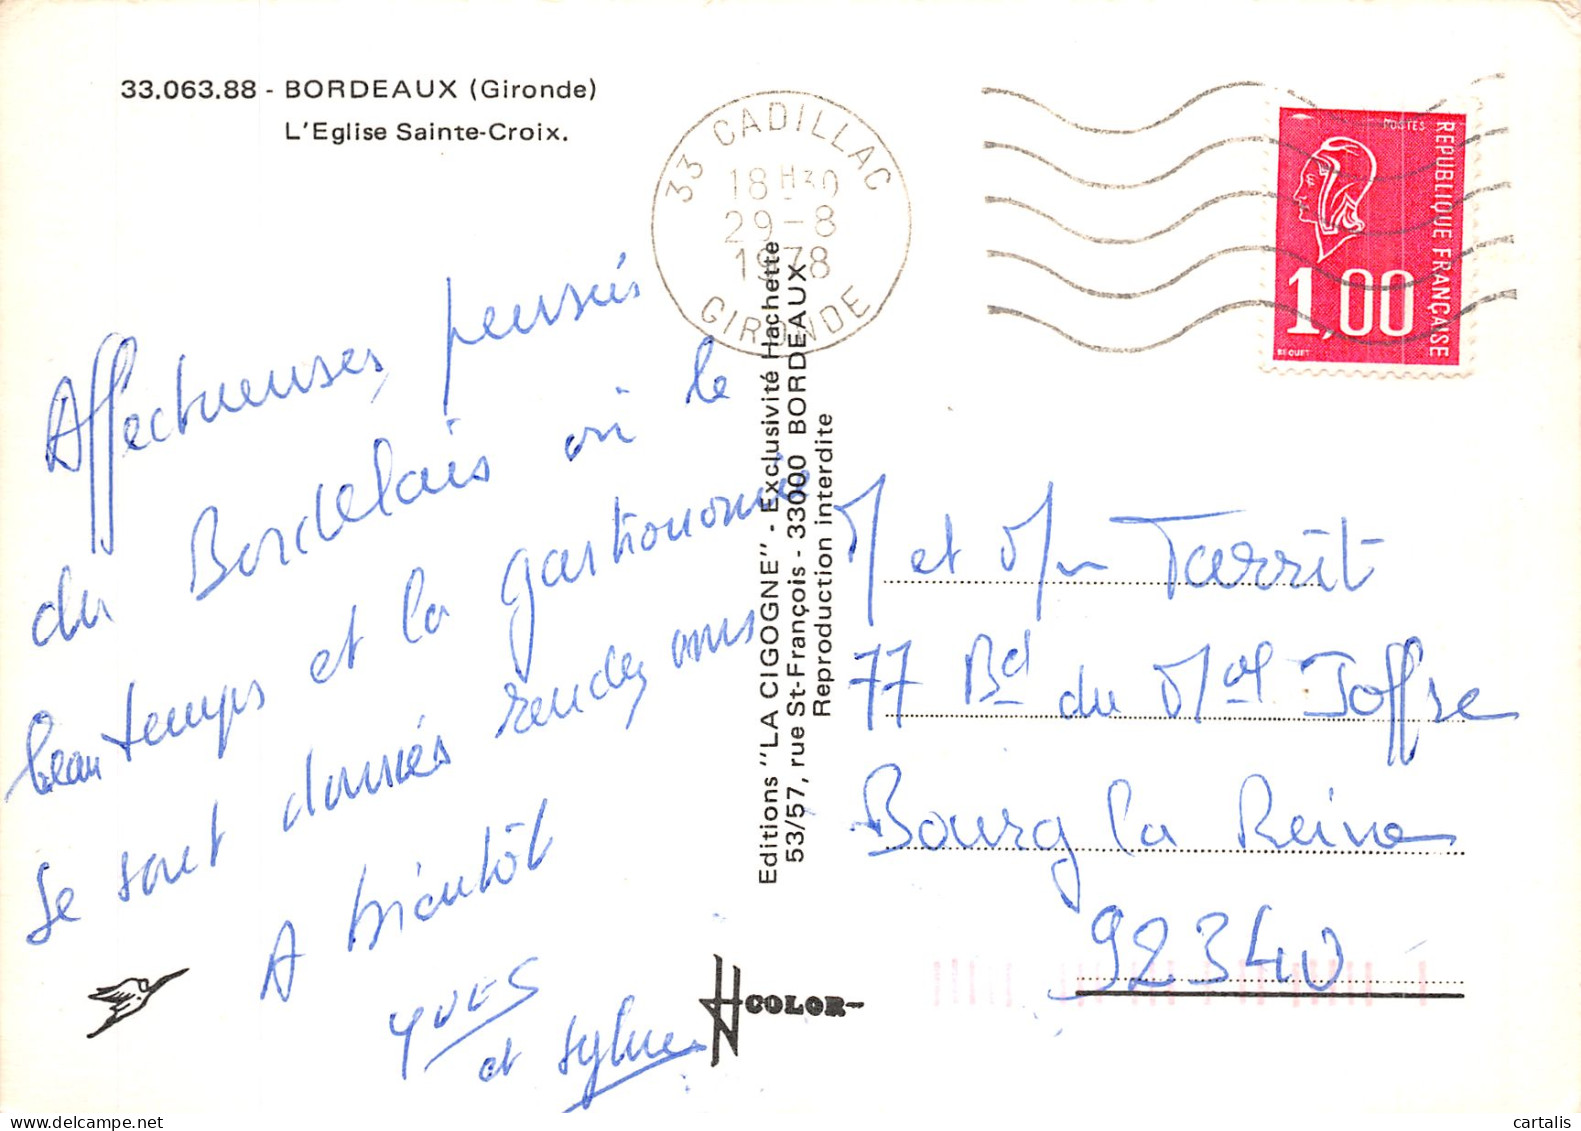 33.063.88 - BORDEAUX (Gironde)
L'Eglise Sainte-Croix.
33 CADILLAC
18 H30
29-8
1978
GIRONDE
POSTES
REPUBLIQUE FRANÇAISE
1,00
BEQUET
Affectueuses pensées
du Bordelais où le
beau temps et la gastronomie
se sont donnés rendez vous
A bientôt
YVES
et Sylvie
Editions "LA CIGOGNE" - Exclusivité Hachette
53/57, rue St-François - 33000 BORDEAUX
Reproduction interdite
M et Mme Tarrit
77 Bd du Mal Joffre
Bourg la Reine
92340
COLOR
www.delcampe.net
cartalis